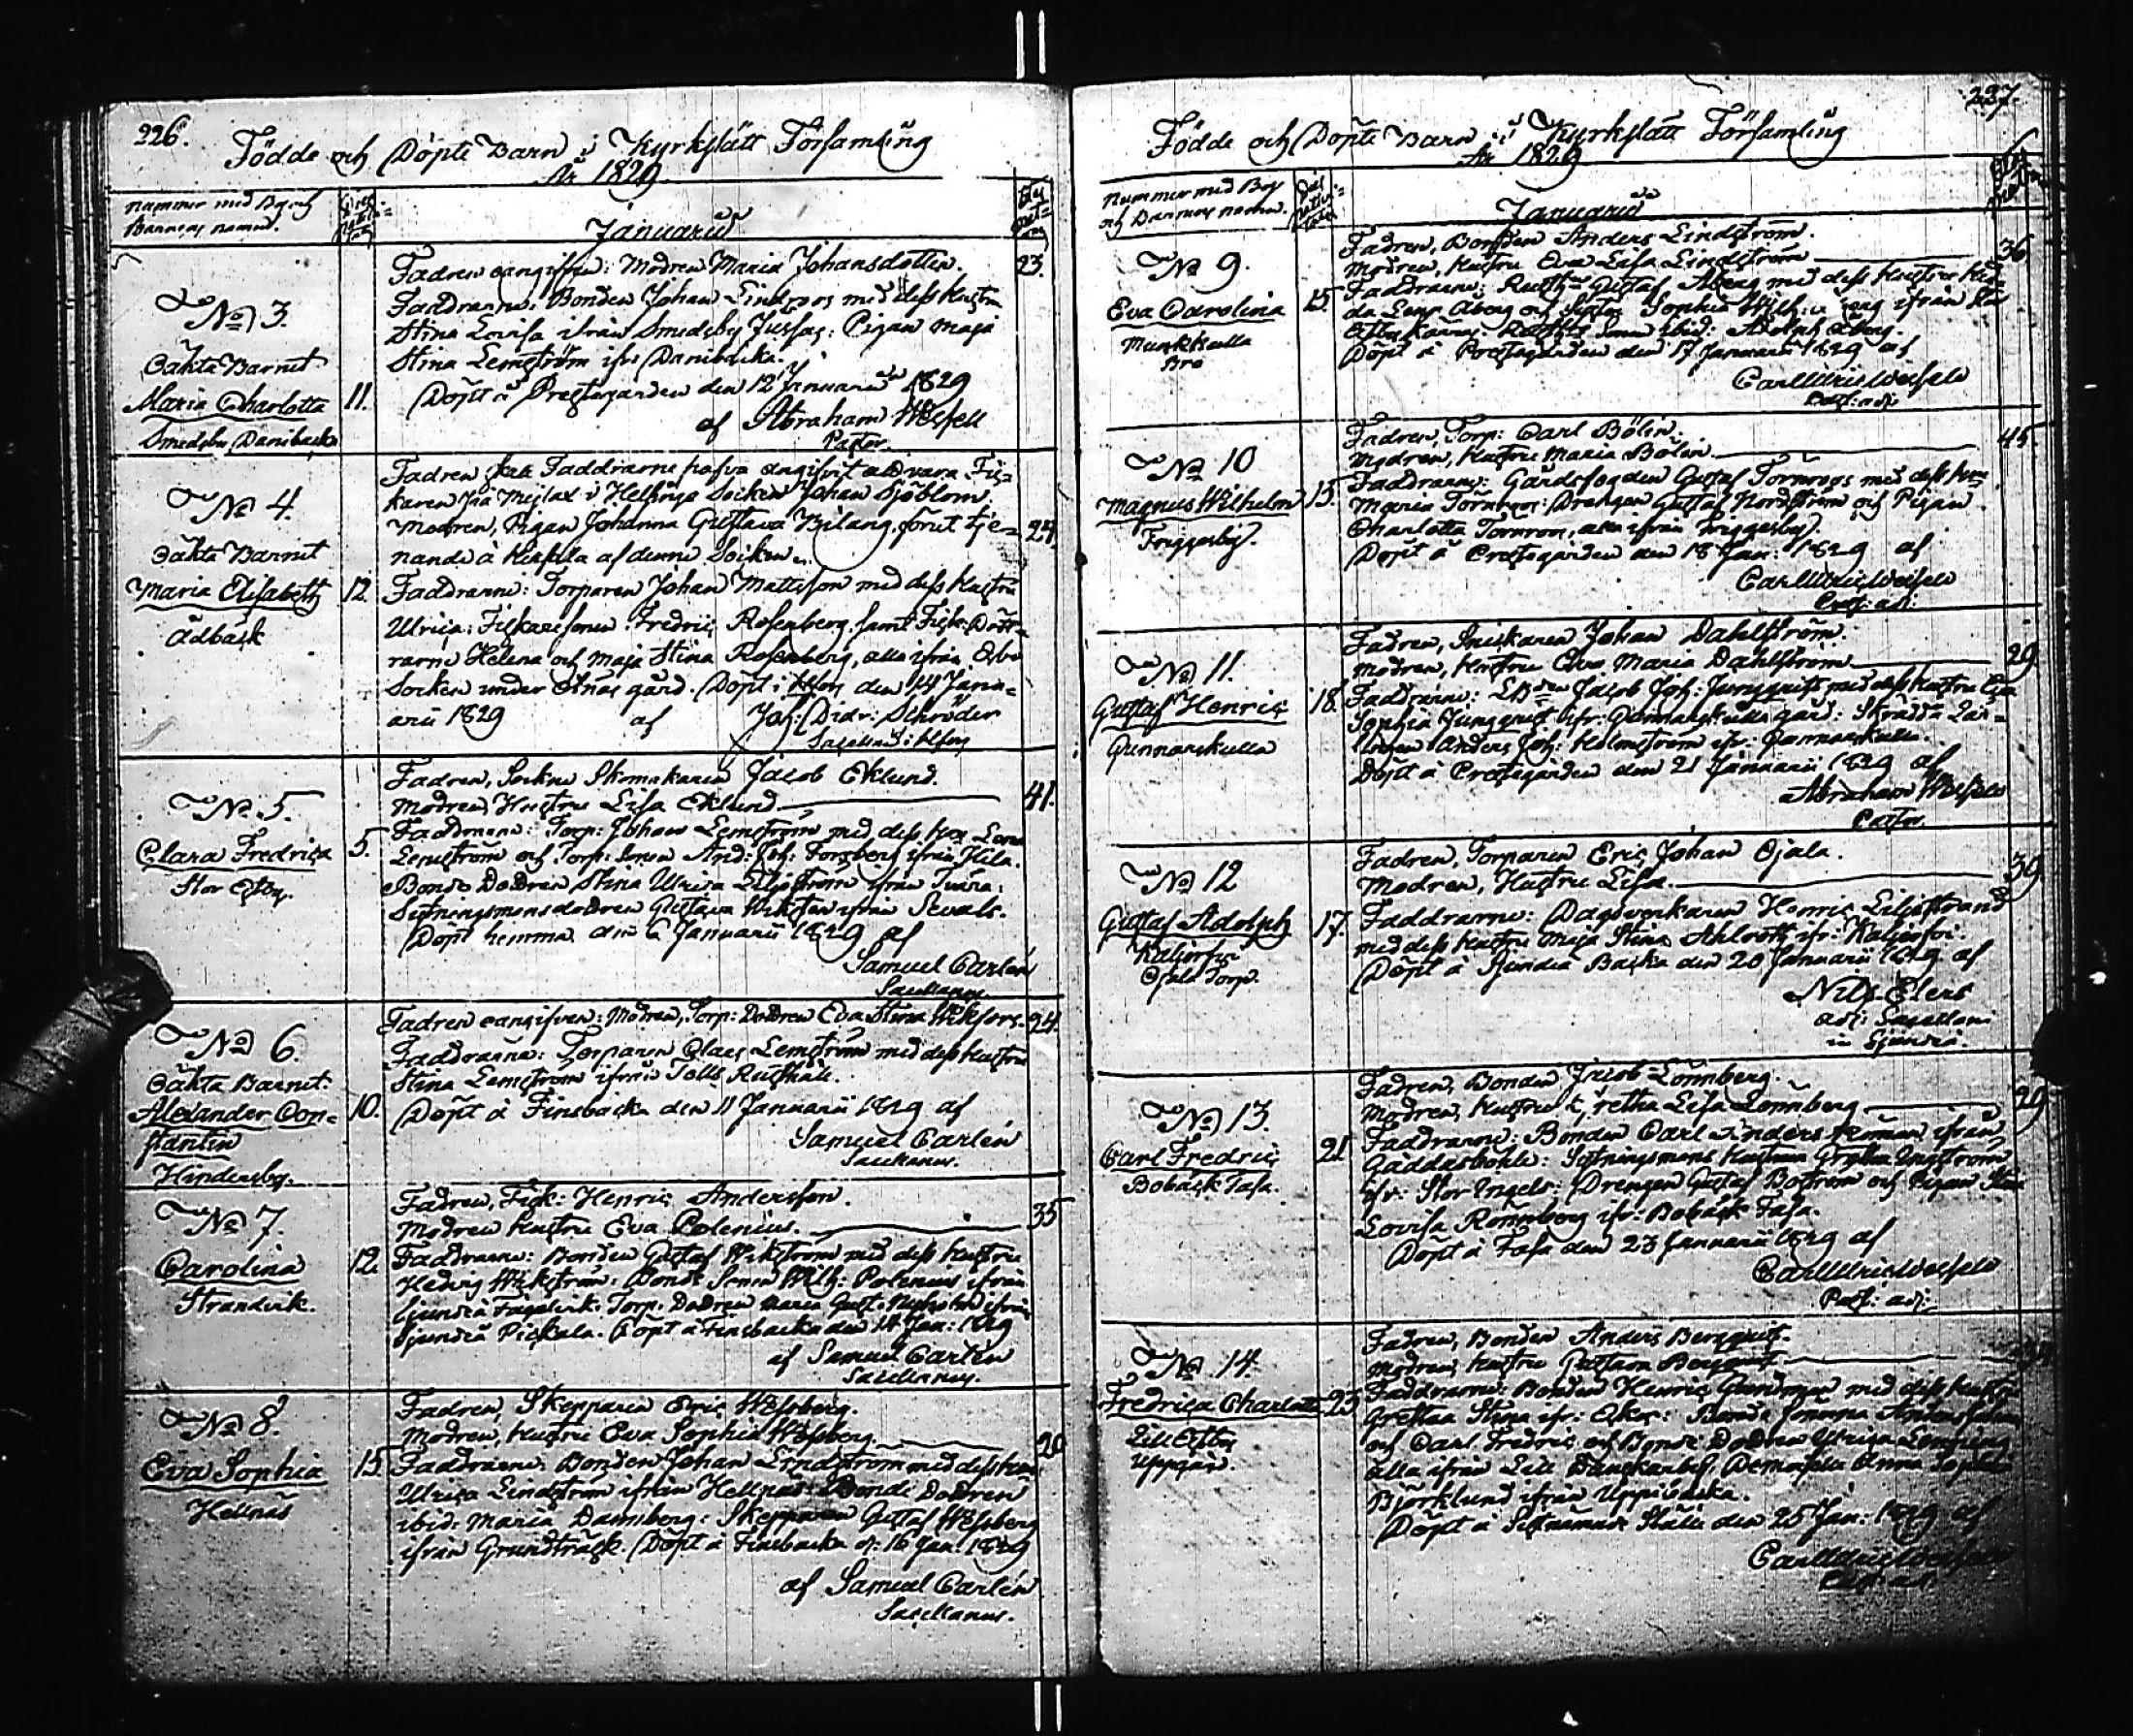 226.
Födde och Döpte Barn i Kyrkslätt Församling
År 1829.
Nummer med By och
Barnens namn.
Januarii
Fadren oangifven: Modren Maria Johansdotter. 23.
Faddrarne: Bonden Johan Lindroos med dess Hustru
Stina Lovisa ifrån Smedsby Jussas: Pigan Maja
Stina Lemström ifr: Danibacka.
Döpt å Prestegården den 12 Januarii 1829
af Abraham Wesfell
Pastor.
No 3.
Oäkta Barnet
Maria Charlotta 11.
Smedsby Danibacka
Fadren skall Faddrarne hafva angifvit att vara Fis-
karen från i Helsinge Socken Johan Sjöblom.
Modren, Pigan Johanna Gustava Bilang, förut tje- 24.
nande å af denne Socken.
Faddrarne: Torparen Johan Mattsson med dess Hustru
Ulrica: Fiskaresonen Fredric Rosenberg, samt Fisk: Dött-
rarne Helena och Maja Stina Rosenberg, alla ifrån Esbo
Socken under gård. Döpt i Hfors den 14 Janu-
arii 1829 af Joh: Didr: Schröder
Sacellan: i Hfors
No 4.
Oäkta Barnet
Maria Elisabeth 12.
Ådbäck
Fadren, Sockne Skomakaren Jacob Eklund.
Modren Hustru Lisa Eklund. 41.
Faddrarne: Torp: Johan Lemström med dess Hus: Lena
Lemström och Torp: Sonen And: Joh: Forsberg ifrån Hila.
Bonde Dottren Stina Ulrica Liljeström ifrån
Sytningsmansdottren Gustava Wikstan ifrån Sevals.
Döpt hemma den 6 Januarii 1829 af
Samuel Carlén
Sacellanus.
No 5.
Clara Fredrica 5.
Stor Estby.
Fadren oangifven: Modren, Torp: Dottren Eva Stina Wikfors. 24.
Faddrarne: Torparen Claes Lemström med dess Hustru
Stina Lemström ifrån Tolls Rusthåll.
Döpt å Finsbacka den 11 Januarii 1829 af
Samuel Carlén
Sacellanus.
No 6.
Oäkta Barnet:
Alexander Con- 10.
stantin
Hindersby.
Fadren, Fisk: Henric Andersson.
Modren Hustru Eva Polenius. 35
Faddrarne: Bonden Gustaf Wikström med dess Hustru
Hedvig Wikström: Bonde Sonen Wilh: Polenius ifrån
Sjundeå Fagervik: Torp. Dottren Maria Gust: Nyholm ifrån
Sjundeå Pickala. Döpt å Finsbacka den 14 Jan: 1829
af Samuel Carlén
Sacellanus.
No 7.
Carolina 12.
Strandvik.
Fadren, Skepparen Eric Wesberg.
Modren, Hustru Eva Sophia Wesberg 20
Faddrarne: Bonden Johan Lindström med dess Hus
Ulrica Lindström ifrån Hellnäs: Bonde Dottren
ibid: Maria Dannberg: Skepparen Gustaf Wesberg
ifrån Grundträsk. Döpt å Finsbacka d: 16 Jan: 1829
af Samuel Carlén
Sacellanus.
No 8.
Eva Sophia 15.
Hellnäs
227.
Födde och Döpte Barn i Kyrkslätt Församling
År 1829
Nummer med By
och Barnens namn.
Januarii
Fadren, Bonden Anders Lindström.
Modren, Hustru Eva Lisa Lindström 36
Faddrarne: Rusth: Gustaf Åberg med dess Hustru
Lena Åberg och Syster Sophia ifrån
ibid: Adolph Åberg.
Döpt å Prestegården den 17 Januarii 1829 af
Carl Ulric Wesfell
Past: adj:
No 9.
Eva Carolina 15.
Munkkulla
Bro
Fadren, Torp: Carl Bölin.
Modren, Hustru Maria Bölin. 45.
Faddrarne: Gårdsfogden Gustaf Törnroos med dess Hus
Maria Törnroos: Drengen Gustaf Nordström och Pigan
Charlotta Törnroos, alla ifrån Friggesby.
Döpt å Prestegården den 18 Jan: 1829 af
Carl Ulric Wesfell
Past: adj:
No 10
Magnus Wilhelm 15.
Friggesby.
Fadren, Snickaren Johan Dahlström.
Modren, Hustru Eva Maria Dahlström 29.
Faddrarne: Jacob Joh: Jungquist med dess Hustru
Sophia Jungquist ifr: Gunnarskulla gård: Skräddar Lär-
lingen Anders Joh: Holmström ifr: Gunnarskulla.
Döpt å Prestegården den 21 Januarii 1829 af
Abraham Wesfell
Pastor.
No 11.
Gustaf Henric 18.
Gunnarskulla
Fadren, Torparen Eric Johan Ojala.
Modren, Hustru Lisa. 39.
Faddrarne: Dagsverkaren Henric Liljestrand
med dess Hustru Maja Stina Ahlroth ifr: Kaljorfvi.
Döpt å Sjundeå Backa den 20 Januarii 1829 af
Nils Elers
adj: Sacellani
in Sjundeå.
No 12
Gustaf Adolph 17.
Kaljorfvi
Ojala Torp.
Fadren, Bonden Jacob Lönnberg.
Modren, Hustru Gretha Lisa Lönnberg 29
Faddrarne: Bonden Carl Anders ifrån
Gäddasböhle: Sytningsmans Hustrun Greta Engström
ifr: Stor Ingels: Drengen Gustaf Boström och Pigan Stina
Lovisa Rönnberg ifr: Bobäck Tasa.
Döpt å Tasa den 23 Januarii 1829 af
Carl Ulric Wesfell
Past: adj:
No 13.
Carl Fredric 21.
Bobäck Tasa.
Fadren, Bonden Anders Bergquist.
Modren, Hustru Gustava Bergquist
Faddrarne: Bonden Henric med dess Hustru
Gretha Stina ifr: Bonde Sönerna
och Carl Fredric och Bonde Dottren Ulrica
alla ifrån Lill Anna Sophia
Björklund ifrån Uppibacka.
Döpt å Ställe den 25 Jan: 1829 af
Carl Ulric Wesfell
No 14.
Fredrica Charlotta 23
Lill Estby
Uppgård.